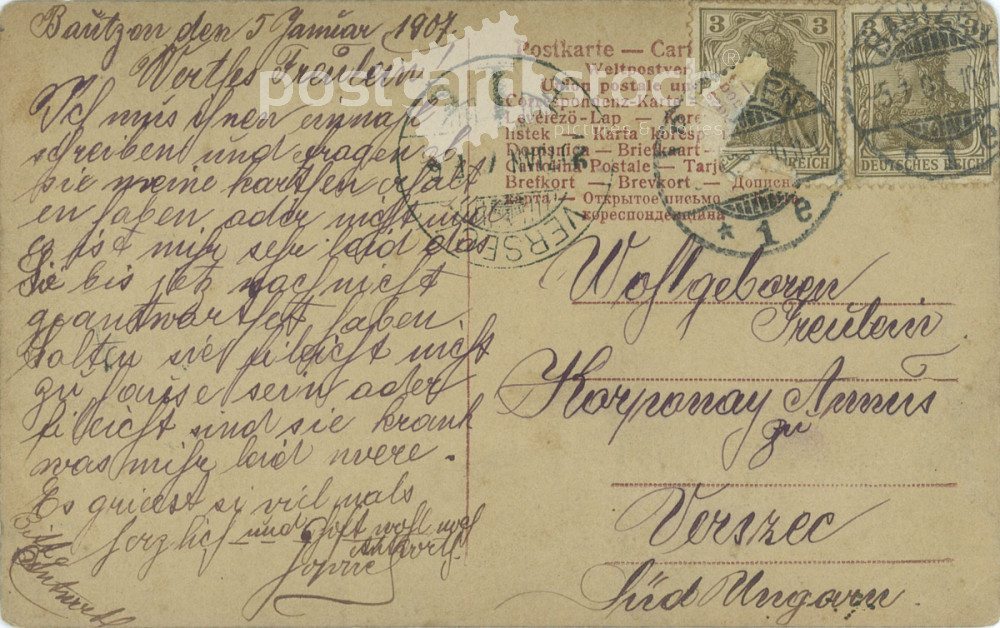 Bautzon den 5 Januar 1907.
Wertles Freulein!
Ich mus ihnen einmal
schreiben und fragen ob
sie meine karten erhalt
en haben oder nicht und
es ist mir sehr leid das
Sie bis jetz noch nicht
geantworthet haben
Solten sie fileicht nicht
zu hause sein oder
fileicht sind sie krank
was mihr leid were.
Es griest si viel mals
herzlich und hoft wohl noch
Antworth.
Bitte
Antworth
Postkarte — Cart
Weltpostver
Union postale un
Correspondenz-Karte
Levelező-Lap — Kore
listek — Karta koresp
Dopisnica — Briefkaart
Cartolina Postale — Tarje
Brefkort — Brevkort — Дописна
карта — Открытое письмо
кореспонденцiйна
3 3
REICH
3 3
DEUTSCHES REICH
BAUTZEN
* 1 e
VERSEC
post cards stock
®
Wohlgeboren
Freulein
Korponay Annus
zu
Verszec
Süd Ungarn.